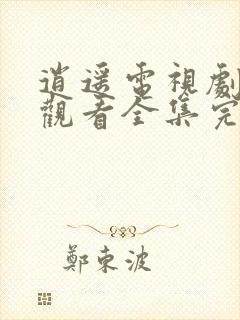 逍遥電視劇
觀看全集完
鄭東波